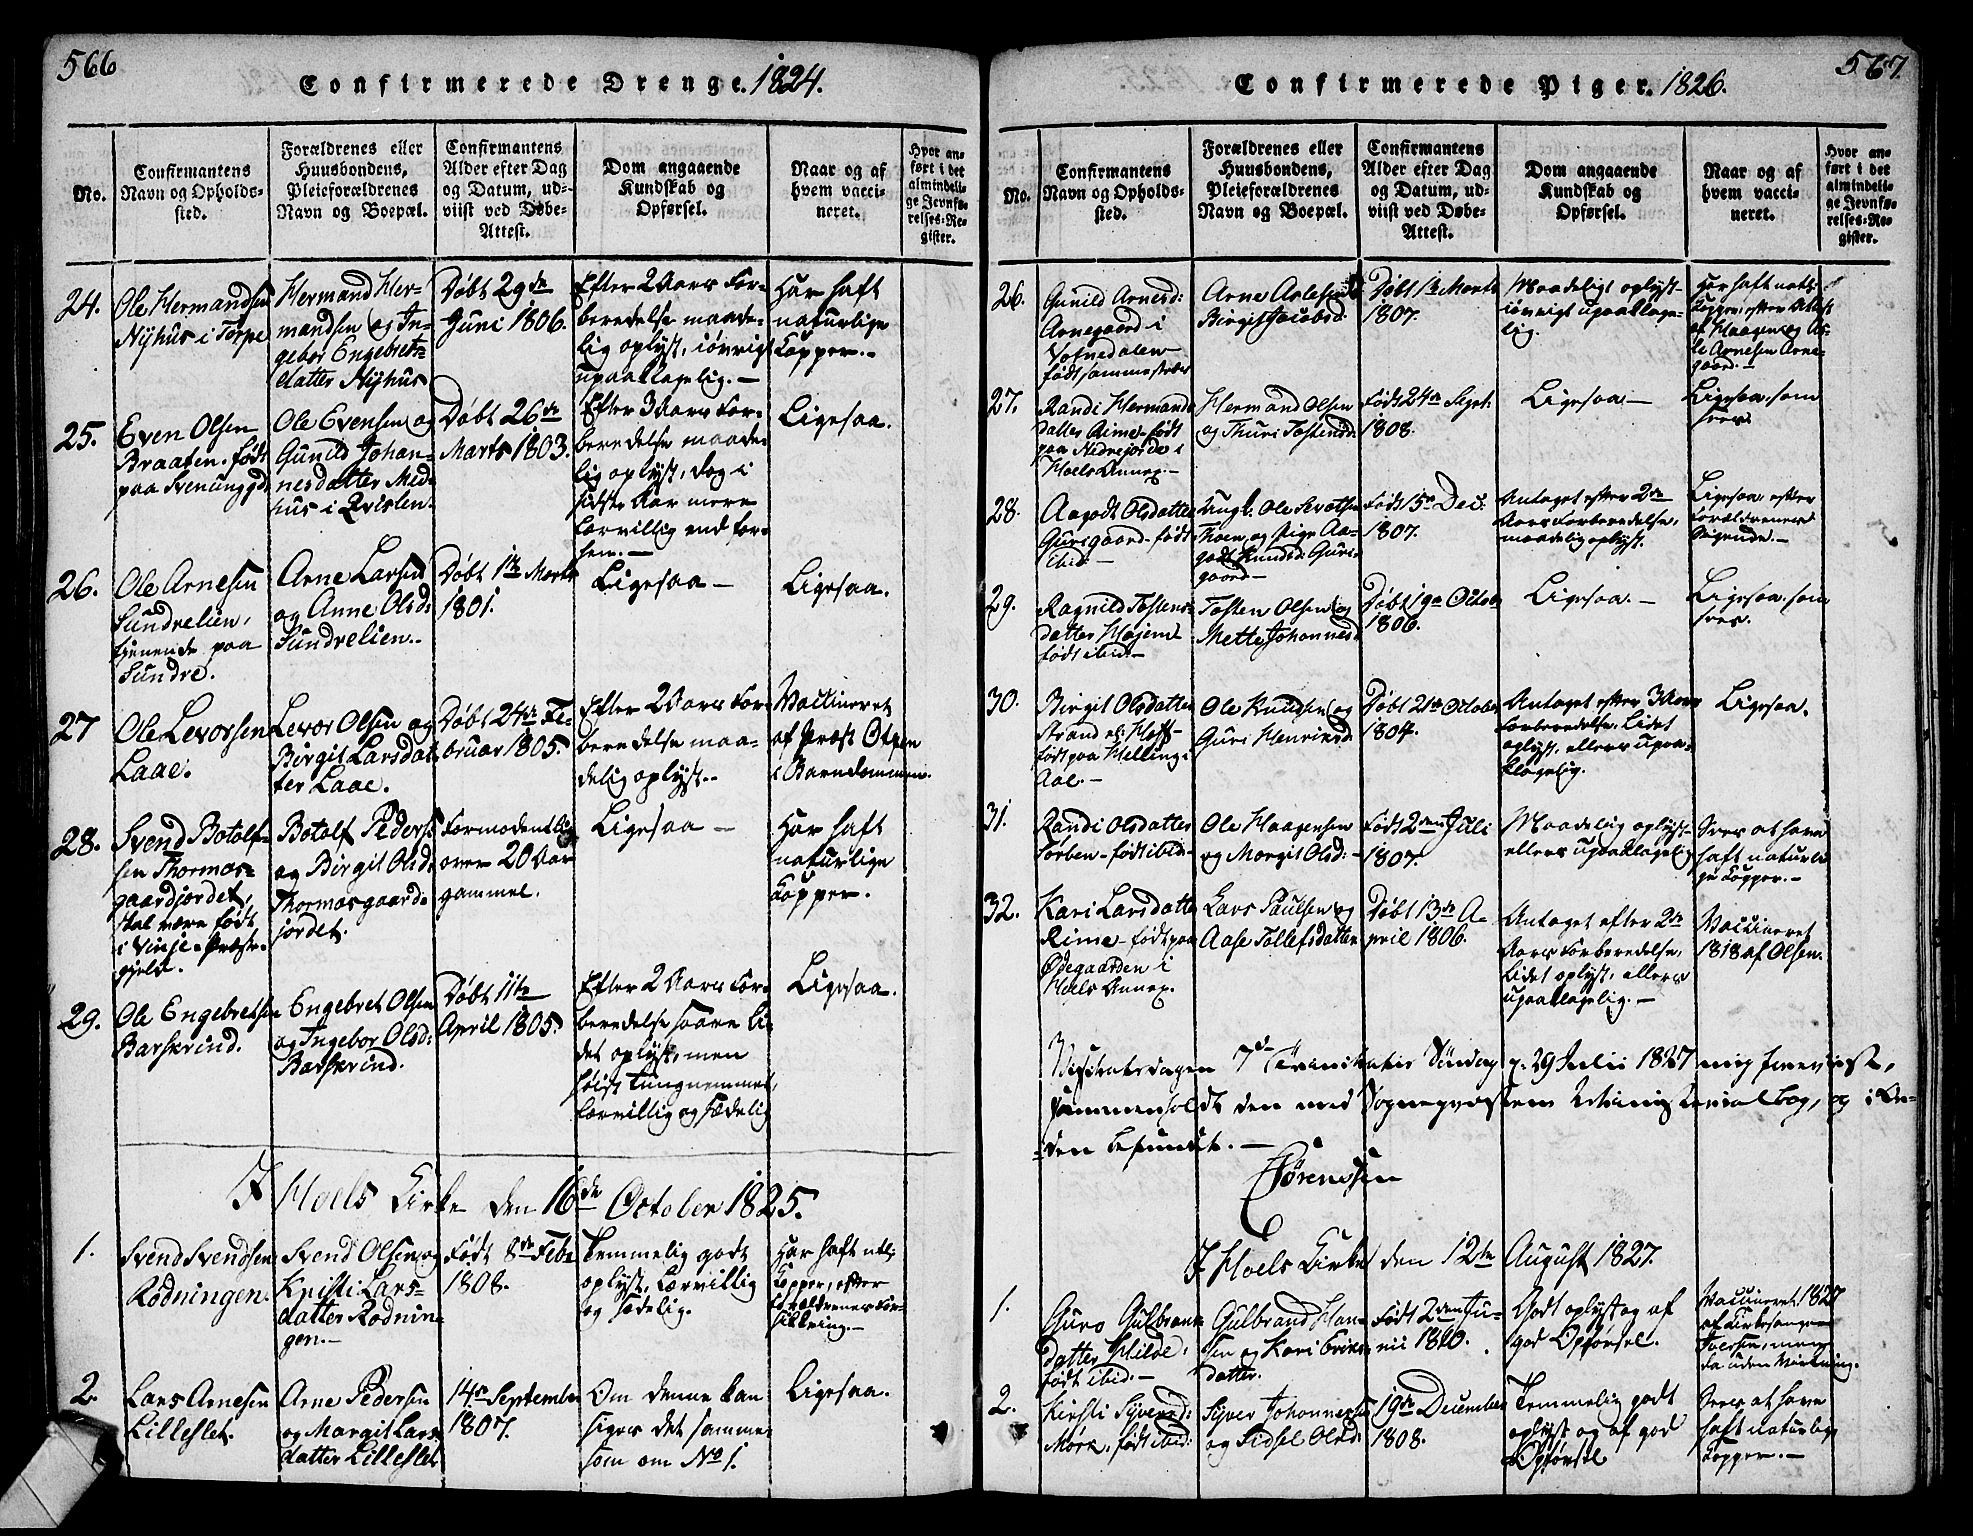 566
Confirmerede Drenge. 1824.
No.
Confirmantens
Navn og Opholds-
sted.
Forældrenes eller
Huusbondens,
Pleieforældrenes
Navn og Boepæl.
Confirmantens
Alder efter Dag
og Datum, ud-
viist ved Døbe-
Attest.
Dom angaaende
Kundskab og
Opførsel.
Naar og af
hvem vacci-
neret.
Hvor an-
ført i det
almindeli-
ge Jevnfø-
relses-Re-
gister.
24.
Ole Hermandsen
Nyhus i Torpe
Hermand Her-
mandsen og In-
gebor Engebrets-
datter Nyhus
Døbt 29de
Juni 1806.
Efter 2 Aars For-
beredelse maade-
lig oplyst, iøvrigt
upaaklagelig.-
Har haft
naturlige
Kopper.-
25.
Even Olsen
Braaten. født
paa Svenunggd.
Ole Evensen og
Gunild Johan-
nesdatter Mid-
hus i Qvislen.
Døbt 26de
Marts 1803.
Efter 3 Aars For-
beredelse maade-
lig oplyst, dog i
sidste Aar mere
lærvillig end før-
hen.-
Ligesaa.
26.
Ole Arnesen
Sundrelien,
tjenende paa
Sundre.
Arne Larsen
og Anne Olsd:
Sundrelien.
Døbt 1te Marts
1801.
Ligesaa -
Ligesaa.
27
Ole Levorsen
Laae.
Levor Olsen og
Birgit Larsdat-
ter Laae.
Døbt 24de Fe-
bruar 1805.
Efter 2 Aars For-
beredelse maa-
delig oplyst.
Vaccineret
af Præst
i Barndommen.
28.
Svend Botolf-
sen Thormos-
gaardjordet,
skal være født
i Vinje-Præste-
gjeld.
Botolf Peders:
og Birgit Olsd:
Thormosgaard-
jordet.
Formodentlig
over 20 Aar
gammel.
Ligesaa -
Har haft
naturlige
Kopper.
29.
Ole Engebretsen
Barskrind.
Engebret Olsen
og Ingebor Olsd:
Barskrind.
Døbt 11te
April 1805.
Efter 2 Aars For-
beredelse saare li-
det oplyst, men
høist tungnemmet,
lærvillig og sædelig
Ligesaa.
I Hoels Kirke den 16de October 1825.
1.
Svend Svendsen
Rodningen.
Svend Olsen og
Kristi Lars-
datter Rodnin-
gen.-
Født 8de Feb:
1808.
Temmelig godt
oplyst, lærvillig
og sædelig.
Har haft natl.
Kopper, efter
Forældrenes For-
sikring.-
2.
Lars Arnesen
Lilleslet.
Arne Pedersen
og Margit Lars-
datter Lilleslet
14de September
1807.
Om denne kan
siges det samme
som om No 1.
Ligesaa.
567
Confirmerede Piger. 1826.
No.
Confirmantens
Navn og Opholds-
sted.
Forældrenes eller
Huusbondens,
Pleieforældrenes
Navn og Boepæl.
Confirmantens
Alder efter Dag
og Datum, ud-
viist ved Døbe-
Attest.
Dom angaaende
Kundskab og
Opførsel.
Naar og af
hvem vacci-
neret.
Hvor an-
ført i det
almindeli-
ge Jevnfø-
relses-Re-
gister.
26.
Gunild Arnesd:
Arnegaard i
Votnedalen
født sammesteds
Arne Aslesen
Birgit Jacobsd.
Døbt 1te Marts
1807.
Maadeligt oplyst-
iøvrigt upaaklage-
lig.
Har haft natl:
Kopper, efter Attest
af Haagen og As-
le Arnesen Arne-
gaard.-
27.
Randi Hermands-
datter Rime-født
paa Nedrejorde i
Hoels Annex.-
Hermand Olsen
og Thuri Tostensd:
Født 24de Sept:
1808.
Ligesaa.-
Ligesaa som
28.
Aagodt Olsdatter
Gurigaard-født
ibid.-
Ungk. Ole
og Pige Aa-
godt Knudsd: Guri-
gaard-
Født 15de Dec:
1807.
Antaget efter 2de
Aars Forberedelse,
maadelig oplyst.
Ligesaa, efter
Forældrenes
Sigende.-
29.
Ragnild Tostens-
datter Højem
født ibid.-
Tosten Olsen og
Mette Johannesd:
Døbt 19de Octob:
1806.
Ligesaa.-
Ligesaa, som
30.
Birgit Olsdatter
Strand
født paa Helling i
Aal.-
Ole Knudsen og
Guri Henriksd:
Døbt 21de October
1804.
Antaget efter 3 Aars
Forberedelse. Lidet
oplyst, ellers upaa-
klagelig.
Ligesaa.
31.
Randi Olsdatter
Torben-født ibid:
Ole Haagensen
og Margit Olsd:-
Født 2den Juli
1807.
Maadelig oplyst-
ellers upaaklagelig
Siges at have
haft naturli-
ge Kopper.-
32.
Kari Larsdatter
Rime-født paa
Ødegaarden i
Hoels Annex.
Lars Paulsen og
Aase Tollefsdatter
Døbt 13de A-
pril 1806.
Antaget efter 2de
Aars Forberedelse,
lidet oplyst, ellers
upaaklagelig.-
Vaccineret
1818 af Olsen.
Visitatsdagen 7de Trinitatis Søndag d: 29 Julii 1827 mig foreviist,
sammenholdt den med Sognepræstens Ministerialbog, og i Or-
den befundet.-
Sørenssen
I Hoels Kirke den 12te August 1827.
1.
Guro Gulbrands-
datter Hilde,
født ibid.-
Gulbrand Han-
sen og Kari Eriks-
datter.
Født 2den Ju-
nii 1810.
Godt oplyst og af
god Opførsel.
Vaccineret 1827
af Kirkesanger
Iversen, men
da uden Virkning.
2.
Kirsti Syversd:
Mørk, født ibid:
Syver Johannesen
og Sidsel Olsd:
19de December
1808.
Temmelig godt
oplyst og af god
Opførsel
Siges at have
haft naturlige
Kopper.-